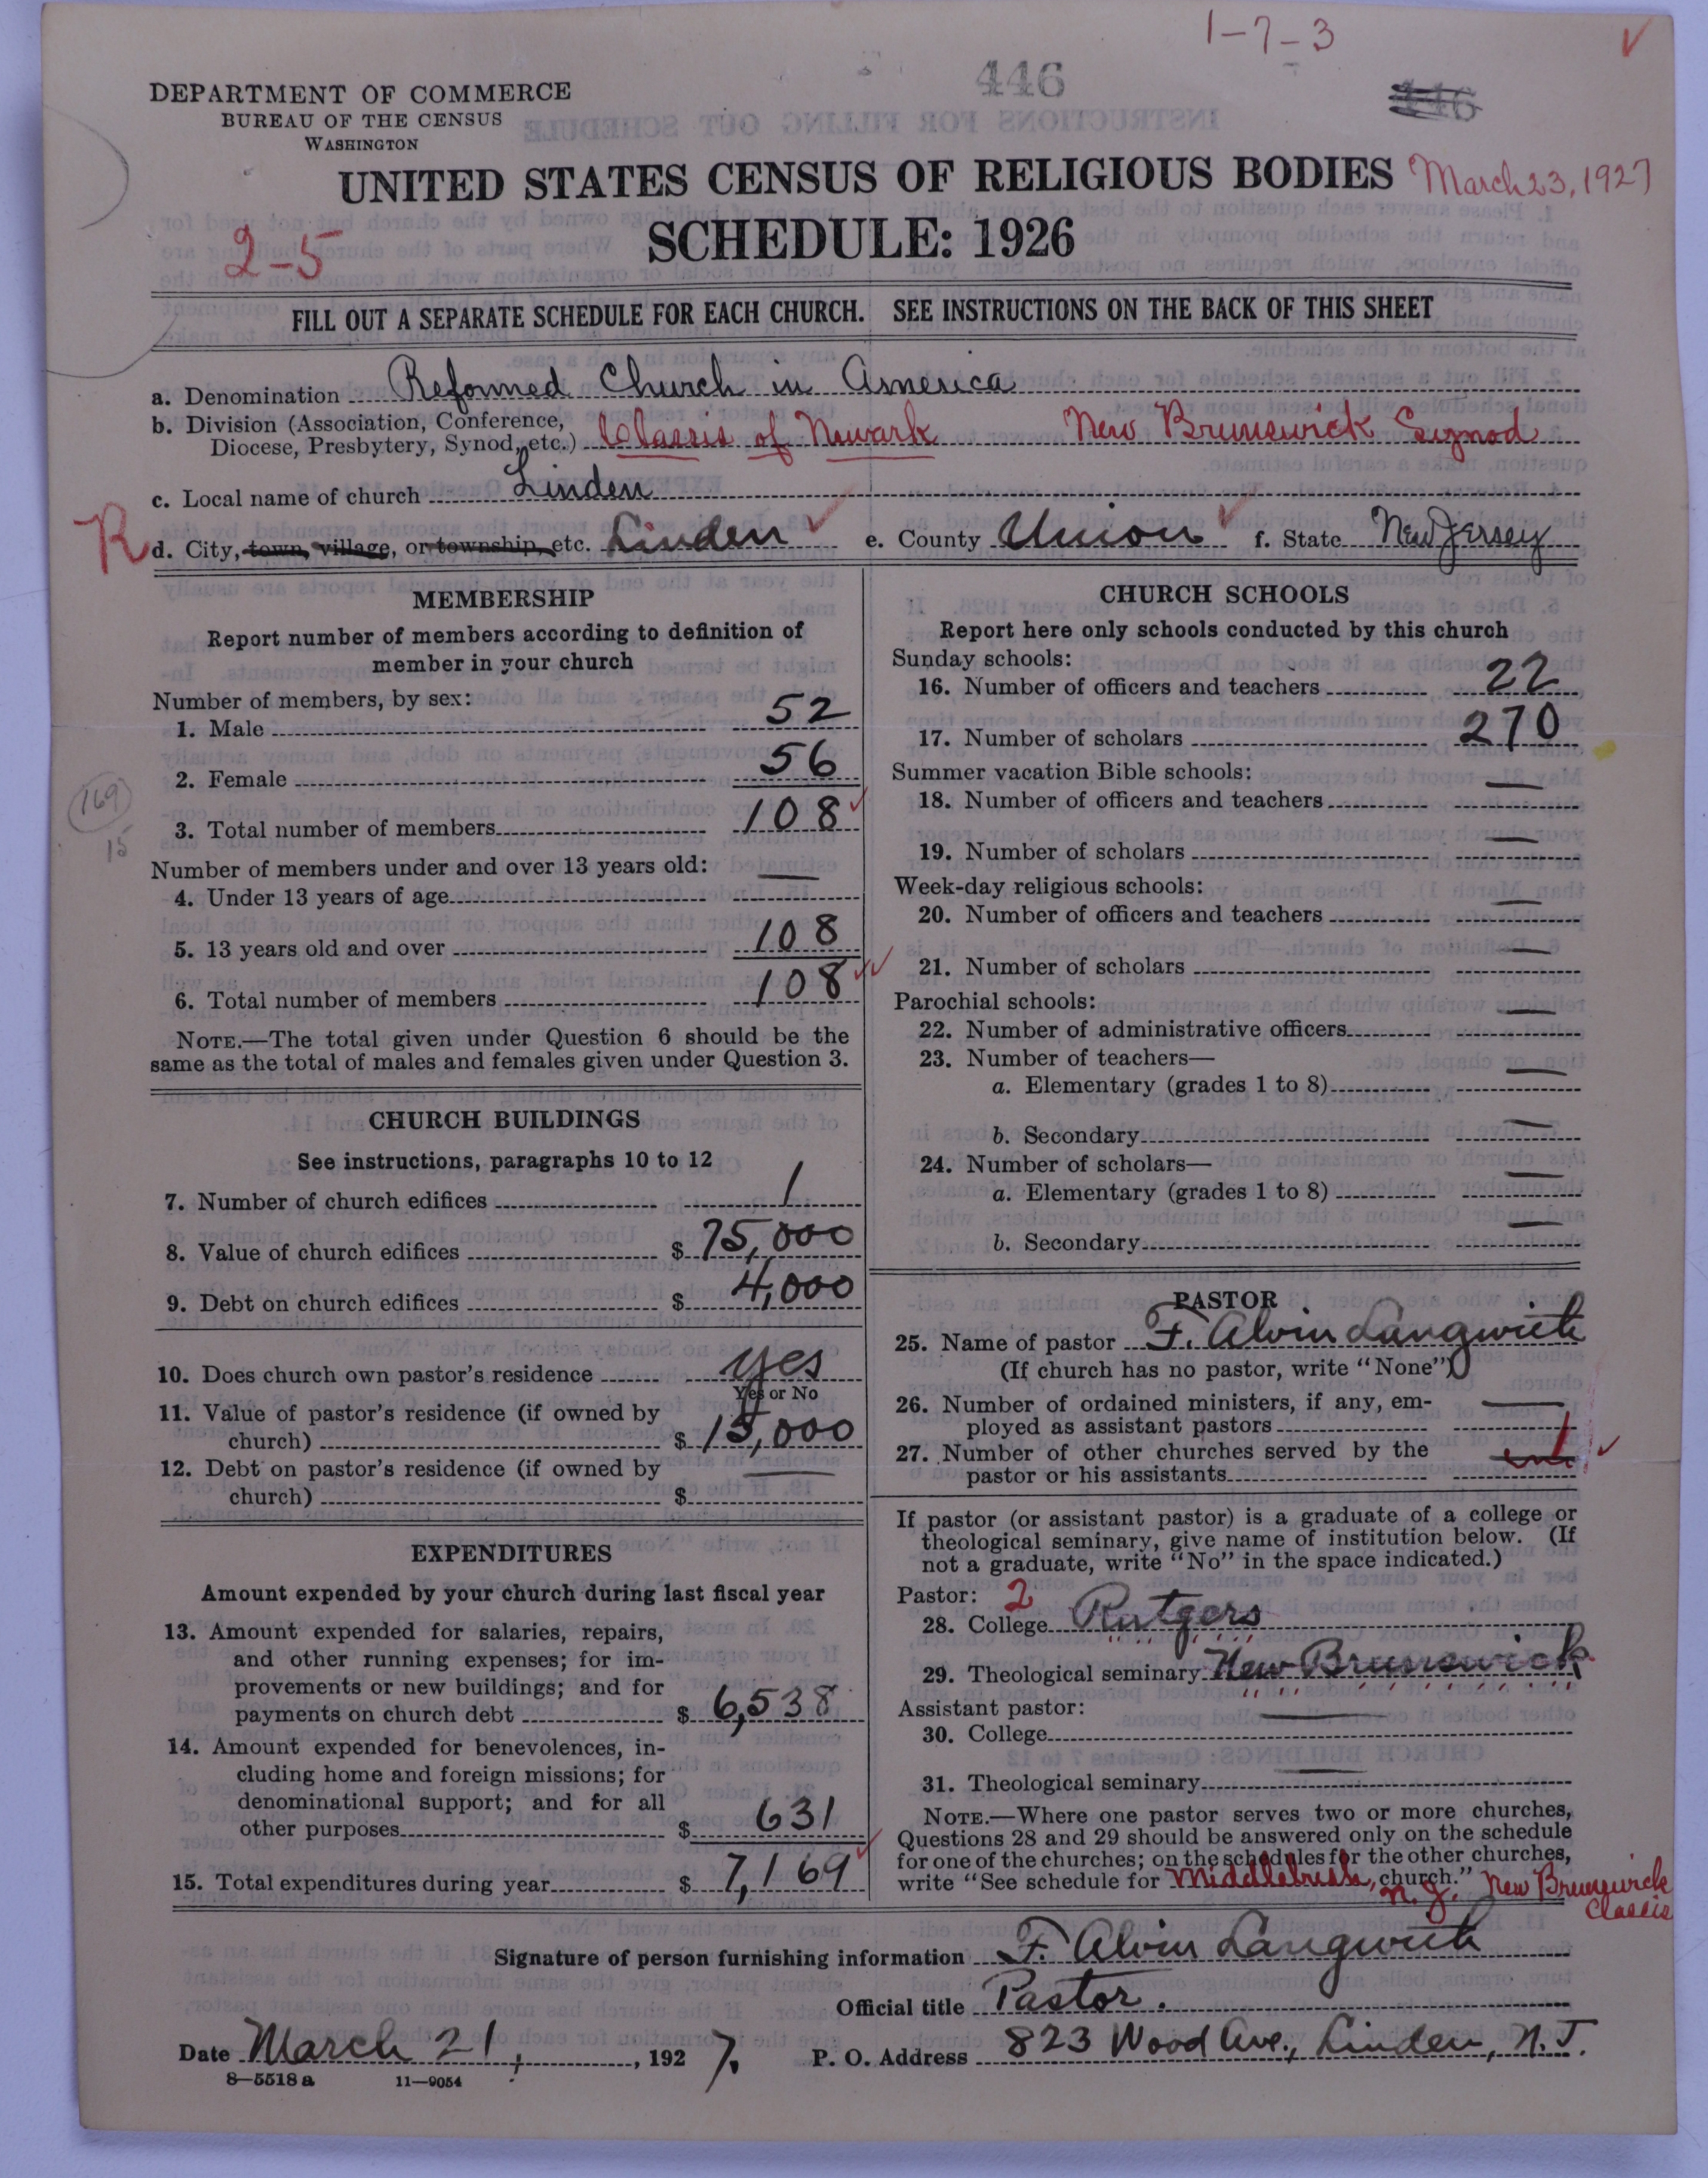 1-7-3
446
446
DEPARTMENT OF COMMERCE
BUREAU OF THE CENSUS
WASHINGTON
UNITED STATES CENSUS OF RELIGIOUS BODIES March 23, 1927
SCHEDULE: 1926
2-5
FILL OUT A SEPARATE SCHEDULE FOR EACH CHURCH. SEE INSTRUCTIONS ON THE BACK OF THIS SHEET
a. Denomination Reformed Church in America
b. Division (Association, Conference,
Diocese, Presbytery, Synod, etc.) Classis of Newark New Brunswick Synod
c. Local name of church Linden
R d. City, town, village, or township, etc. Linden e. County Union f. State New Jersey
MEMBERSHIP
Report number of members according to definition of
member in your church
Number of members, by sex:
1. Male 52
2. Female 56
169
15
3. Total number of members 108
Number of members under and over 13 years old:
4. Under 13 years of age —
5. 13 years old and over 108
6. Total number of members 108
NOTE.—The total given under Question 6 should be the
same as the total of males and females given under Question 3.
CHURCH BUILDINGS
See instructions, paragraphs 10 to 12
7. Number of church edifices 1
8. Value of church edifices $ 75,000
9. Debt on church edifices $ 4,000
10. Does church own pastor's residence yes
Yes or No
11. Value of pastor's residence (if owned by
church) $ 15,000
12. Debt on pastor's residence (if owned by
church) $ —
EXPENDITURES
Amount expended by your church during last fiscal year
13. Amount expended for salaries, repairs,
and other running expenses; for im-
provements or new buildings; and for
payments on church debt $ 6,538
14. Amount expended for benevolences, in-
cluding home and foreign missions; for
denominational support; and for all
other purposes $ 631
15. Total expenditures during year $ 7,169
CHURCH SCHOOLS
Report here only schools conducted by this church
Sunday schools:
16. Number of officers and teachers 22
17. Number of scholars 270
Summer vacation Bible schools:
18. Number of officers and teachers —
19. Number of scholars —
Week-day religious schools:
20. Number of officers and teachers —
21. Number of scholars —
Parochial schools:
22. Number of administrative officers —
23. Number of teachers—
a. Elementary (grades 1 to 8) —
b. Secondary —
24. Number of scholars—
a. Elementary (grades 1 to 8) —
b. Secondary —
PASTOR
25. Name of pastor F. Alvin Langwith
(If church has no pastor, write "None")
26. Number of ordained ministers, if any, em-
ployed as assistant pastors —
27. Number of other churches served by the
pastor or his assistants 1
If pastor (or assistant pastor) is a graduate of a college or
theological seminary, give name of institution below. (If
not a graduate, write "No" in the space indicated.)
Pastor: 2
28. College Rutgers
29. Theological seminary New Brunswick
Assistant pastor:
30. College —
31. Theological seminary —
NOTE.—Where one pastor serves two or more churches,
Questions 28 and 29 should be answered only on the schedule
for one of the churches; on the schedules for the other churches,
write "See schedule for Middlebush, N.J. church." New Brunswick
Classis
Signature of person furnishing information F. Alvin Langwith
Official title Pastor.
Date March 21, 1927. P. O. Address 823 Wood Ave., Linden, N.J.
8—5518a 11—9054